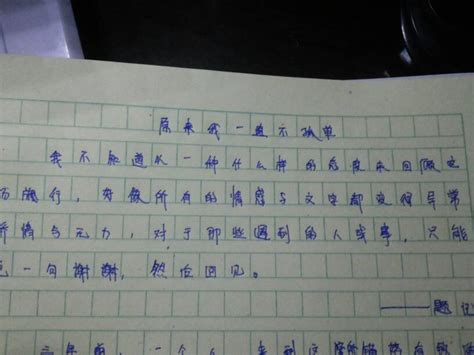 原来我一直不孤单
我不知道以一种什么样的态度来回顾这
旅行，好像所有的情感与文字都变得异常
矫情与无力，对于那些遇到的人或事，只能
一句谢谢，然后回见。
——题记
一个人 来到这座